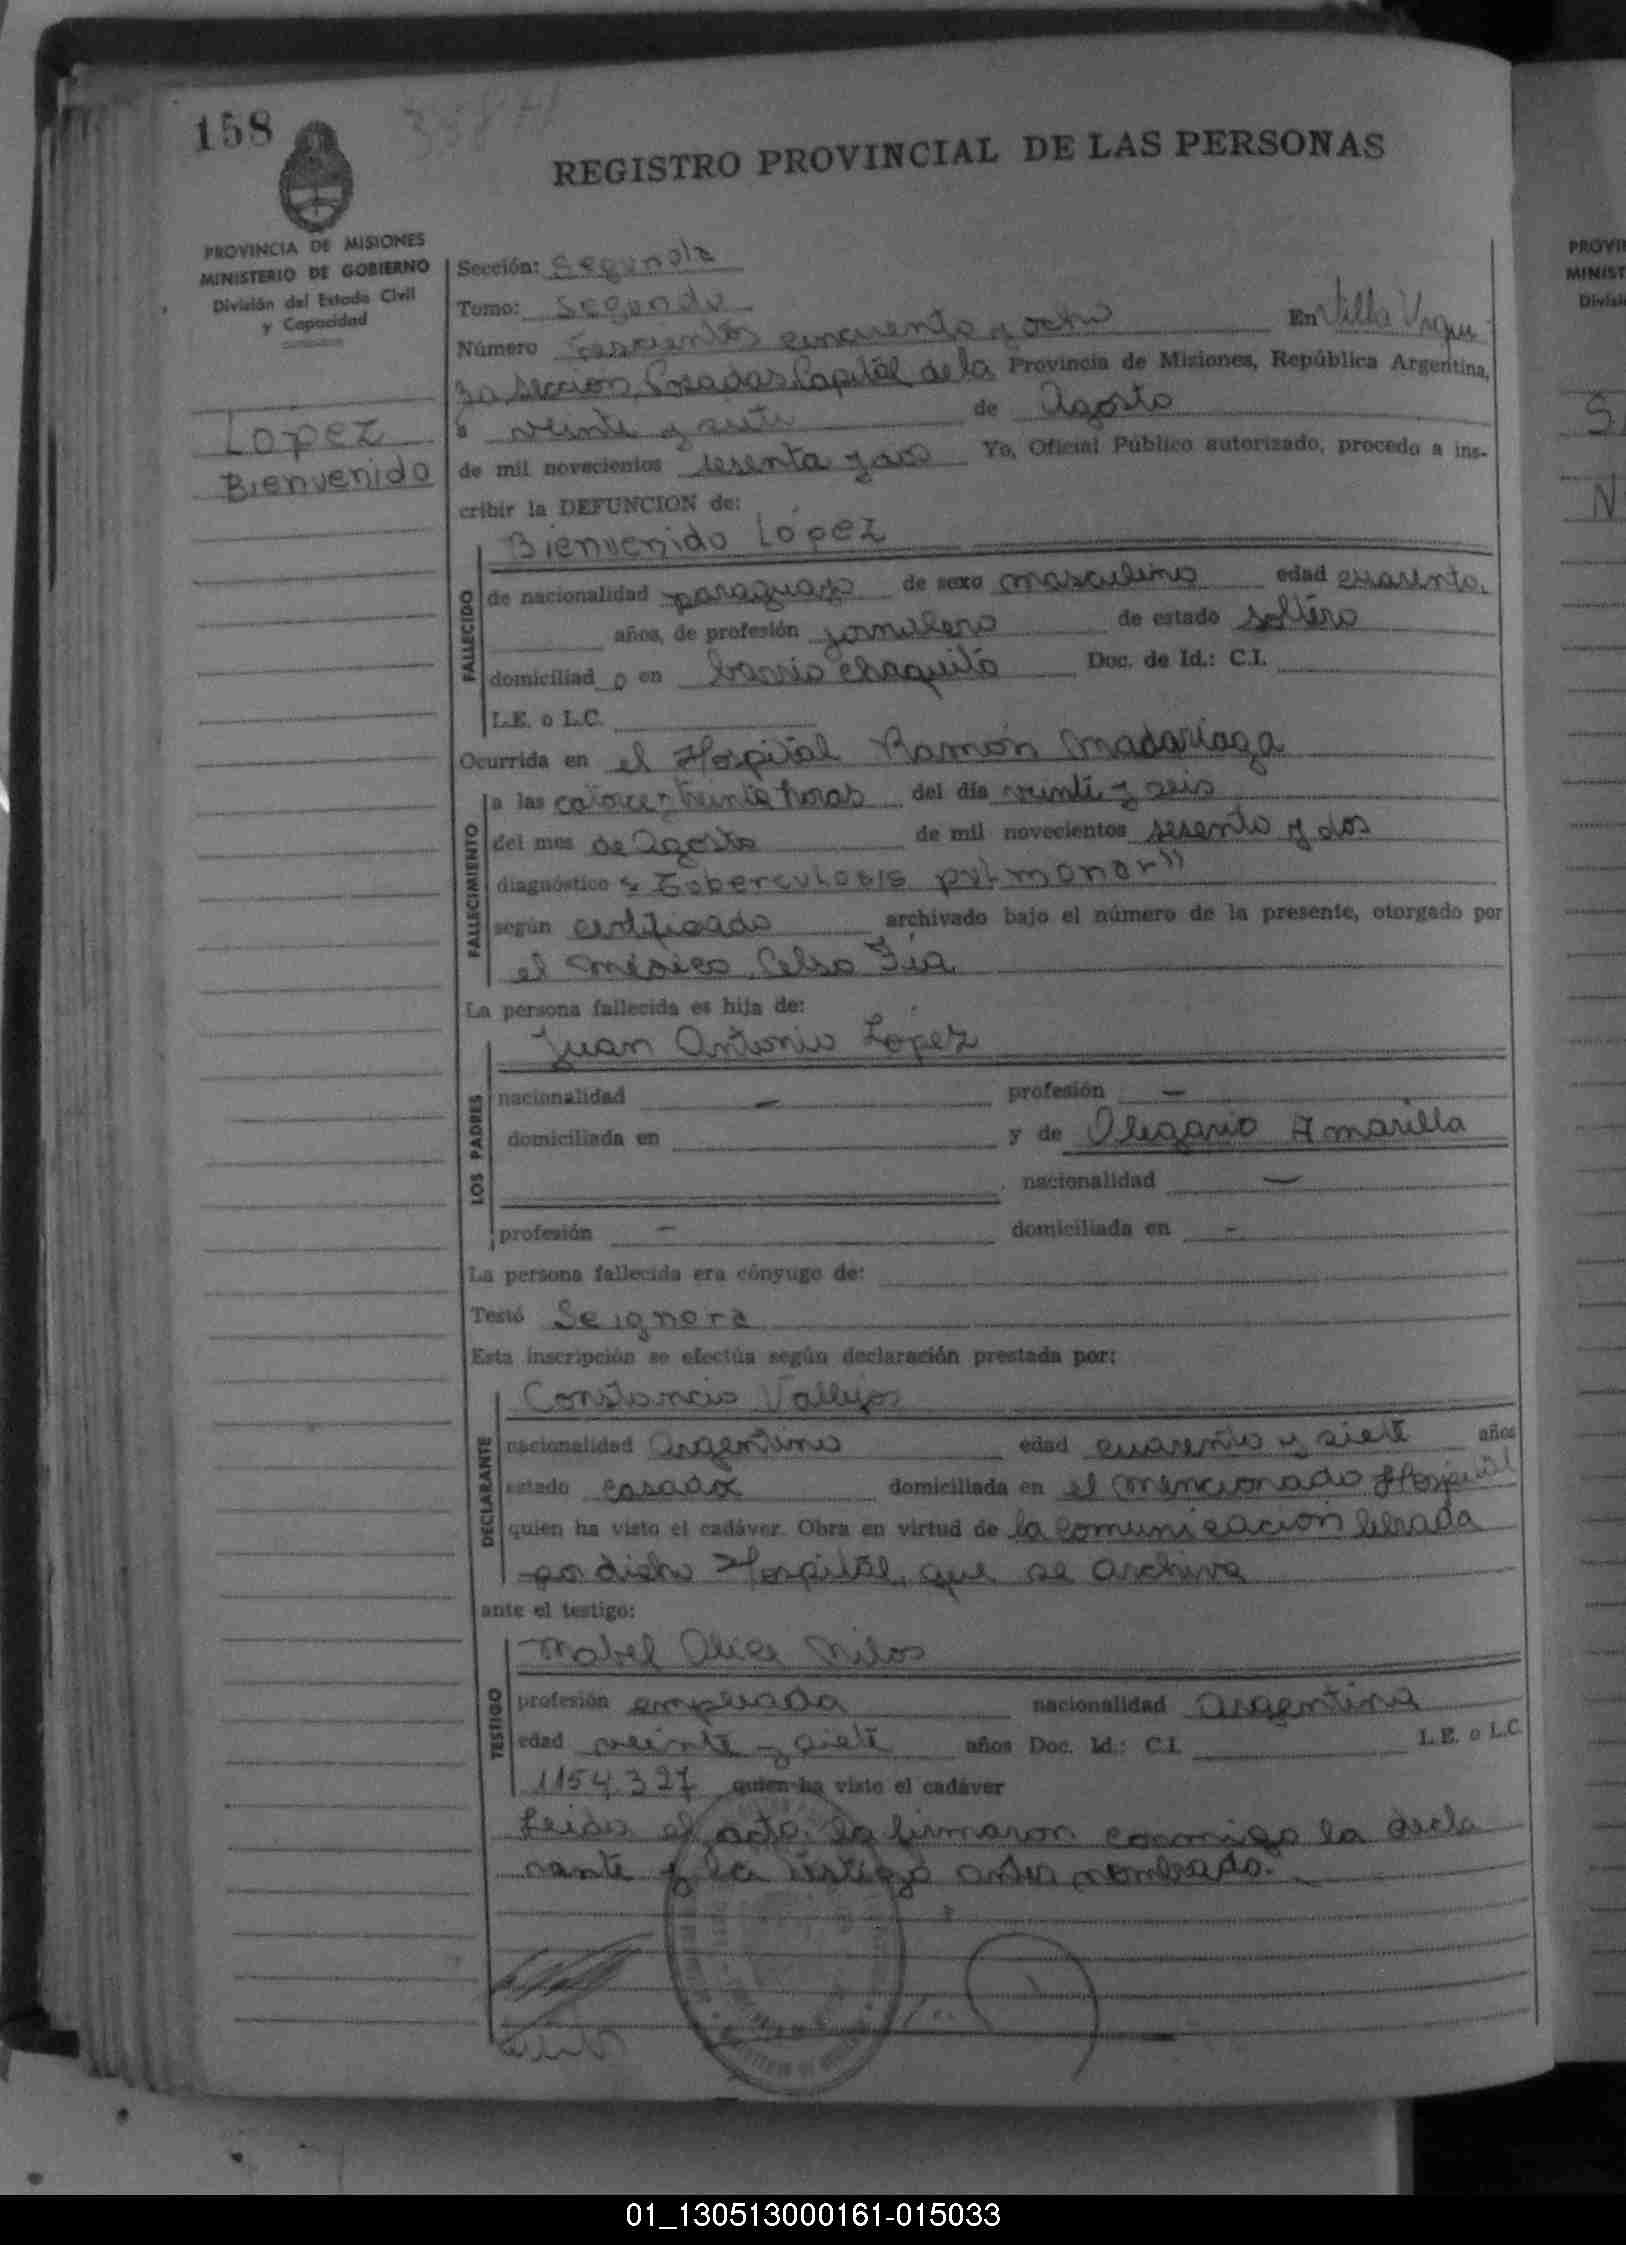 158
REGISTRO PROVINCIAL DE LAS PERSONAS
PROVINCIA DE MISIONES
MINISTERIO DE GOBIERNO
División del Estado Civil
y Capacidad
Lopez
Bienvenido
Sección: Segunda
Tomo: Segundo
Número Trescientos cincuenta y ocho En Villa Urqui
za Sección, Posadas, Capital de la Provincia de Misiones, República Argentina,
a veinte y siete de Agosto
de mil novecientos sesenta y dos Yo, Oficial Público autorizado, procedo a ins-
cribir la DEFUNCION de:
Bienvenido López
FALLECIDO
de nacionalidad paraguayo de sexo masculino edad cuarenta
años, de profesión jornalero de estado soltero
domiciliad o en barrio chaquito Doc. de Id.: C.I.
L.E. o L.C.
Ocurrida en el Hospital Ramón Madariaga
FALLECIMIENTO
a las catorce y treinta horas del día veinte y seis
del mes de Agosto de mil novecientos sesenta y dos
diagnóstico "Tuberculosis pulmonar"
según certificado archivado bajo el número de la presente, otorgado por
el médico, Celso
La persona fallecida es hija de:
Juan Antonio López
LOS PADRES
nacionalidad — profesión —
domiciliada en y de Olegario Amarilla
nacionalidad —
profesión — domiciliada en -
La persona fallecida era cónyuge de:
Testó Se ignora
Esta inscripción se efectúa según declaración prestada por:
Constancio Vallejos
DECLARANTE
nacionalidad Argentino edad cuarenta y siete años
estado casado domiciliada en el mencionado Hospital
quien ha visto el cadáver. Obra en virtud de la comunicación librada
por dicho Hospital, que se archiva
ante el testigo:
Mabel Alice
TESTIGO
profesión empleada nacionalidad Argentina
edad veinte y siete años Doc. Id.: C.I. L.E. o L.C.
1154.327 quien ha visto el cadáver
Leida el acta, la firmaron conmigo la decla
rante y la testigo antes nombrado.
PROVIN
MINIST
Divisió
01_130513000161-015033